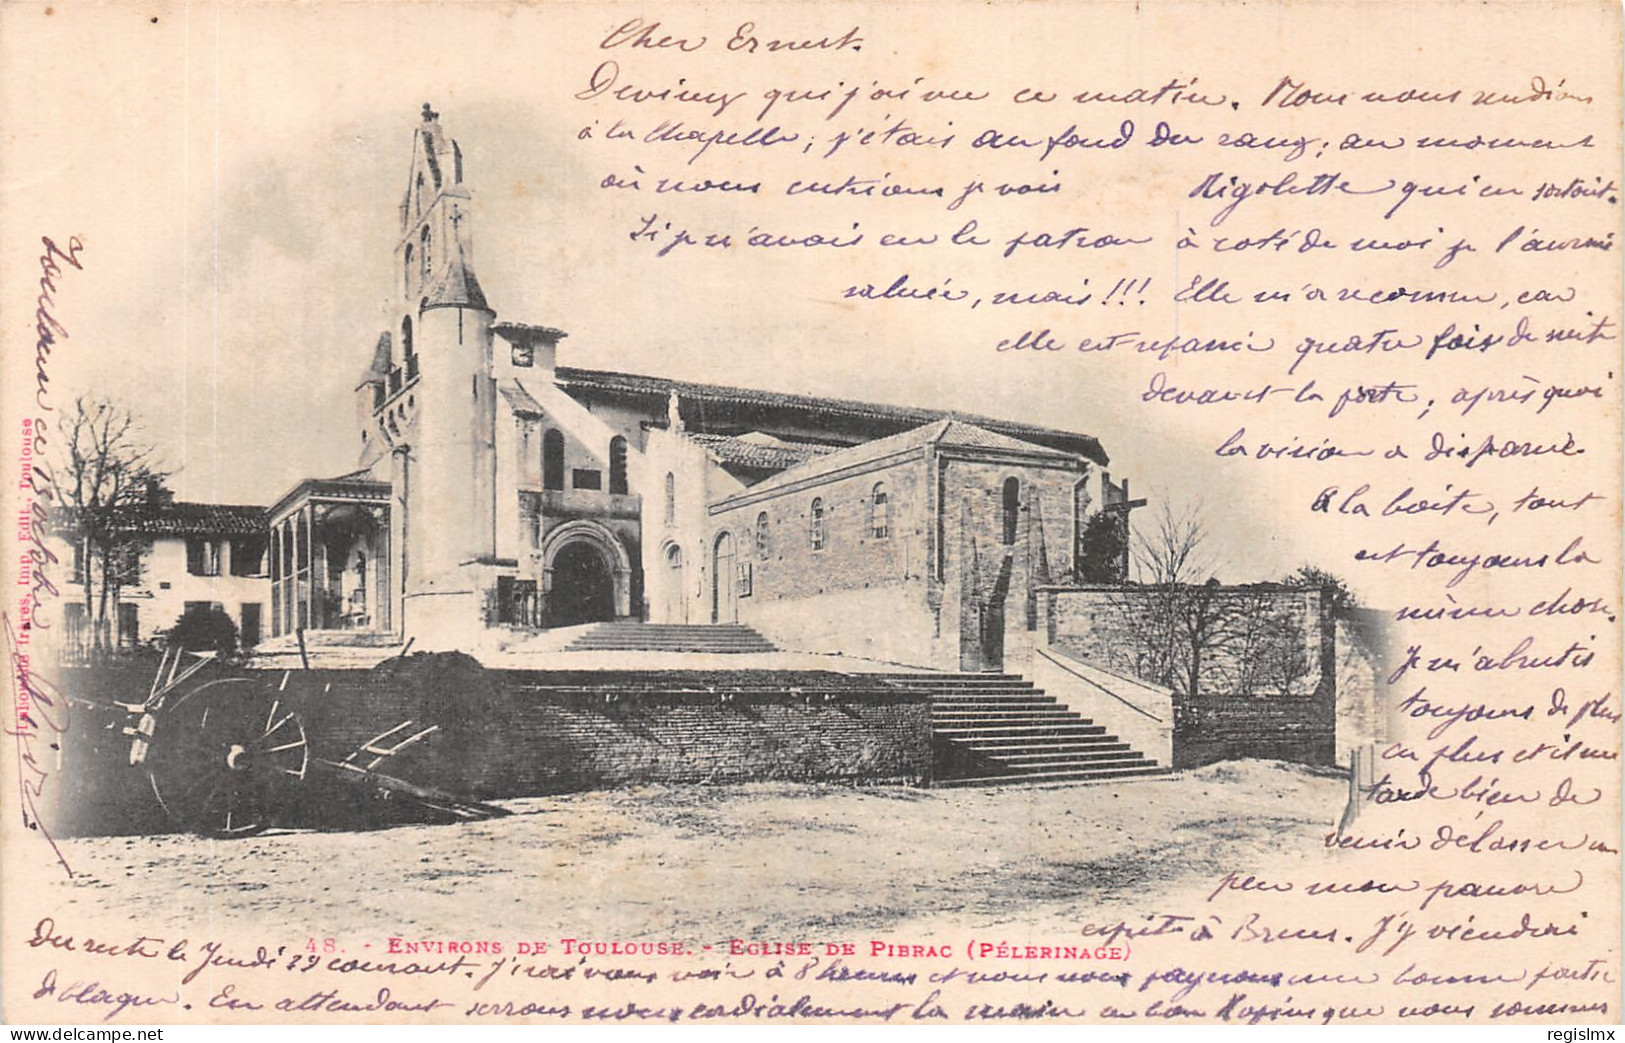 Cher Ernest.
Devinez qui j'ai vu ce matin. Nous nous rendions
à la Chapelle ; j'étais au fond du rang ; au moment
où nous entrions je vois Rigolette qui en sortait.
Si je n'avais eu le patron à coté de moi je l'aurais
saluée, mais !!! Elle m'a reconnu, car
elle est repassée quatre fois de suite
devant la porte ; après quoi
la vision a disparue.
A la boite, tout
est toujours la
même chose.
Je m'abrutis
toujours de plus
en plus et il me
tarde bien de
venir délasser un
peu mon pauvre
esprit à . J'y viendrai
du reste le Jeudi 29 courant. J'irai vous voir à 8 heures et nous nous payerons une bonne partie
de blague. En attendant serrons nous cordialement la main en bon que nous sommes
Toulouse en 18 octobre
48. - ENVIRONS DE TOULOUSE. - EGLISE DE PIBRAC (PÉLERINAGE)
Labouche frères, Imp. Edit., Toulouse
regislmx